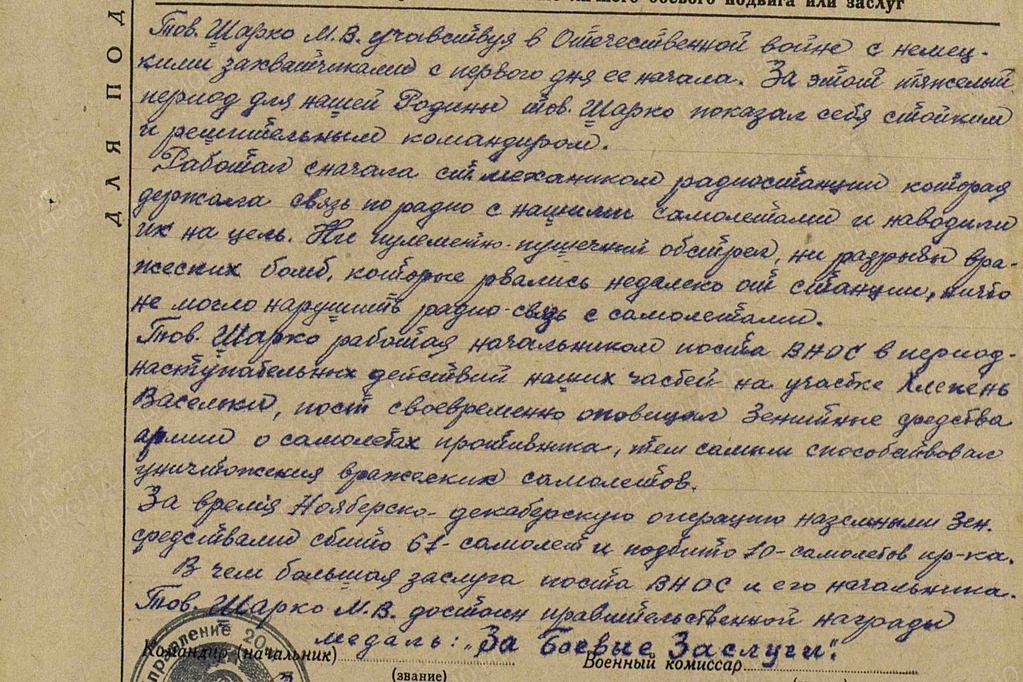 личного боевого подвига или заслуг
ДЛЯ ПОД
Тов. Шарко М.В. учавствуя в Отечественной войне с немец-
кими захватчиками с первого дня ее начала. За этот тяжелый
период для нашей Родины тов. Шарко показал себя стойким
и решительным командиром.
Работал сначала ст. механиком радиостанции которая
держала связь по радио с нашими самолетами и наводили
их на цель. Ни пулеметно-пушечный обстрел, ни разрывы вра-
жеских бомб, которые рвались недалеко от станции, ничто
не могло нарушить радио-связь с самолетами.
Тов. Шарко работая начальником поста ВНОС в период-
наступательных действий наших частей на участке Хлепень
Васельки, пост своевременно оповещал Зенитные средства
армии о самолетах противника, тем самым способствовал
уничтожения вражеских самолетов.
За время Нояберско-декаберскую операцию наземными Зен.
средствами сбито 61-самолет и подбито 10-самолетов пр-ка.
В чем большая заслуга поста ВНОС и его начальника.
Тов. Шарко М.В. достоен правительственной награды
медаль: „За Боевые Заслуги".
Командир (начальник)
Военный комиссар
(звание)
правление 20